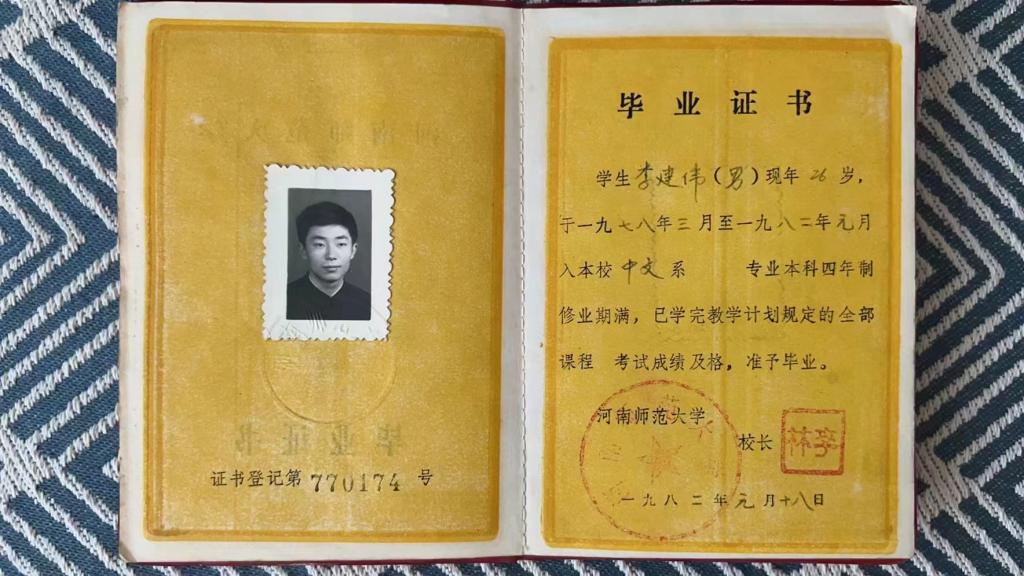 证书登记第770174号
毕业证书
学生李建伟(男)现年26岁,
于一九七八年三月至一九八二年元月
入本校中文系 专业本科四年制
修业期满，已学完教学计划规定的全部
课程 考试成绩及格，准予毕业。
河南师范大学
校长
一九八二年元月十八日